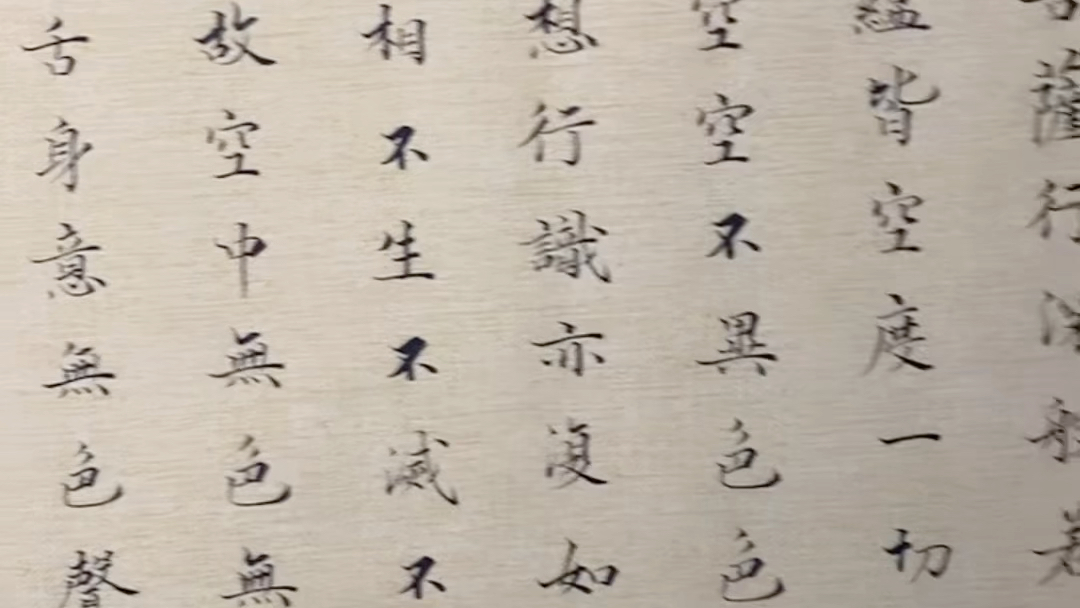 薩行深般若
蘊皆空度一切
空空不異色色
想行識亦復如
相不生不滅不
故空中無色無
舌身意無色聲